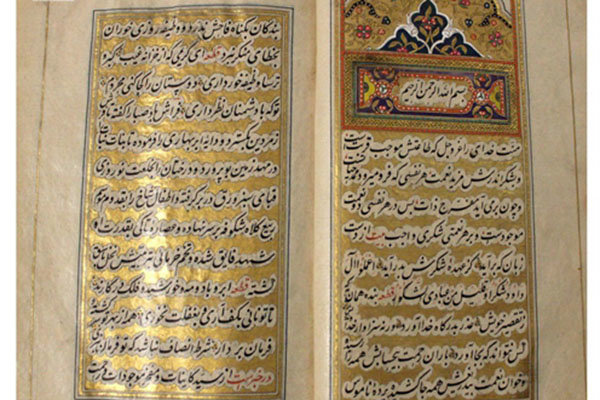 بسم الله الرحمن الرحیم
منت خدای را عز و جل که طاعتش موجب قربت است
و بشکر اندرش مزید نعمت هر نفسی که فرو میرود ممد حیات
و چون برمی آید مفرح ذات پس در هر نفسی دو نعمت
موجودست و بر هر نعمتی شکری واجب بیت از دست
زبان که برآید کز عهده شکرش بدر آید اعملوا آل
داود شکرا و قلیل من عبادی الشکور قطعه بنده همان به که
ز تقصیر خویش عذر بدرگاه خدا آورد ورنه سزاوار خداوندیش
کس نتواند که بجا آورد باران رحمت بیحسابش همه را رسیده
و خوان نعمت بیدریغش همه جا کشیده پرده ناموس
بندگان بگناه فاحش ندرد و وظیفه روزی خوران
بخطای منکر نبرد قطعه ای کریمی که از خزانه غیب گبر و
ترسا وظیفه خور داری دوستان را کجا کنی محروم
تو که با دشمنان نظر داری فراش باد صبا را گفته تا فرش
زمردین بگسترد و دایه ابر بهاری را فرموده تا بنات نبات
در مهد زمین بپرورد و درختان را بخلعت نوروزی
قبای سبز ورق در بر گرفته و اطفال شاخ را بقدوم موسم
ربیع کلاه شکوفه بر سر نهاده و عصاره تاکی بقدرت او
شهد فایق شده و تخم خرمائی بتربیتش نخل باسق
گشته قطعه ابر و باد و مه و خورشید و فلک در کارند
تا تو نانی بکف آری و بغفلت نخوری همه از بهر تو سرگشته و
فرمان بردار شرط انصاف نباشد که تو فرمان نبری
در خبرست از سرور کاینات و مفخر موجودات و رحمت